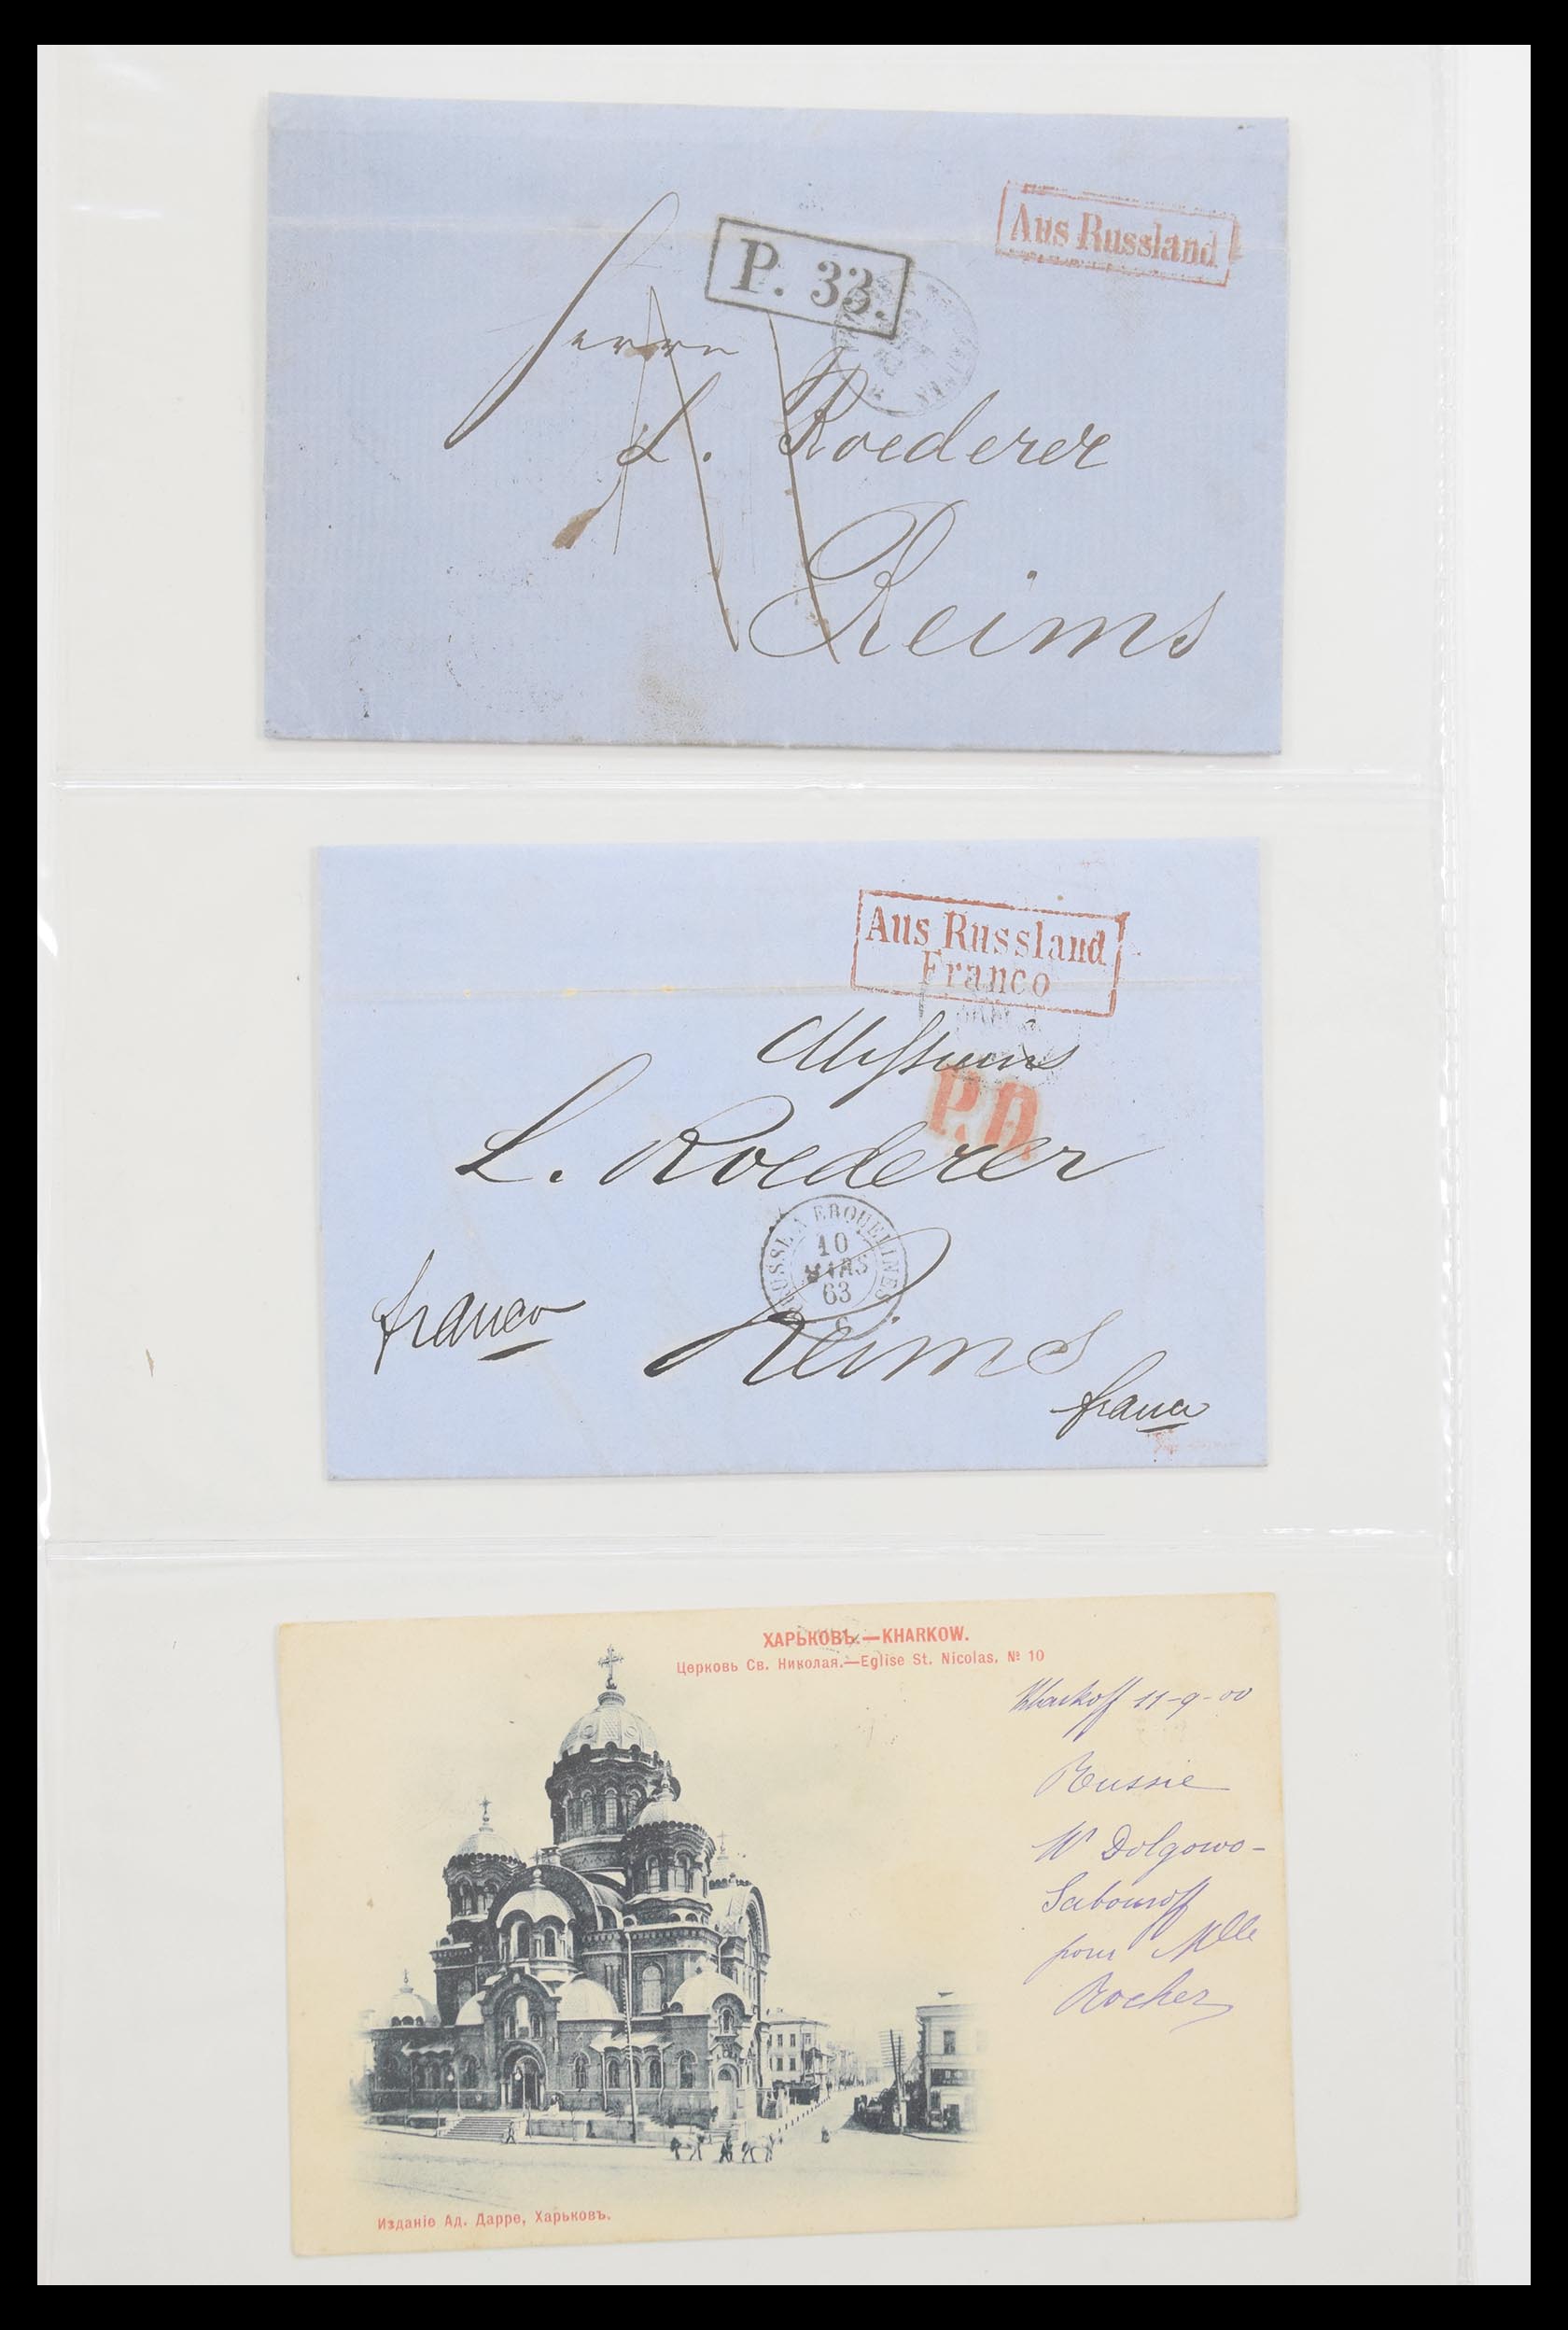 Aus Russland
P. 33.
Herrn
L. Roederer
Reims
Aus Russland
Franco
Messieurs
P.D.
L. Roederer
ERQUELINES
10
MARS
63
franco
Reims
franco
ХАРЬКОВЪ.—KHARKOW.
Церковь Св. Николая.—Eglise St. Nicolas. № 10
Kharkoff 11-9-00
Russie
Mr Dolgowo-
Sabouroff
pour Mlle
Rocher
Изданіе Ад. Дарре, Харьковъ.